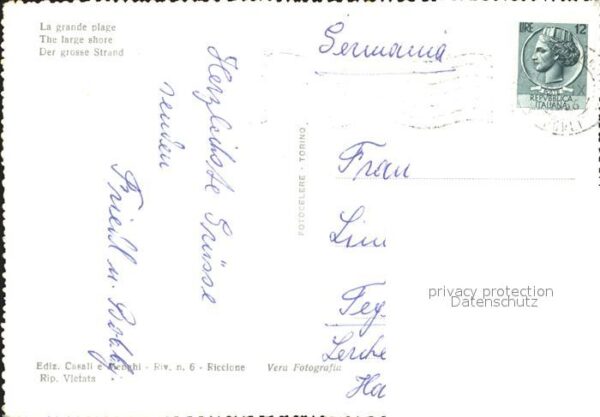 La grande plage
The large shore
Der grosse Strand
Herzlichste Grüsse
senden
Friedl u. Bobby.
FOTOCELERE - TORINO
Germania
LIRE 12
REPVBBLICA
ITALIANA
Frau
privacy protection
Datenschutz
Lerche
Ha
Ediz. Casali e - Riv. n. 6 - Riccione
Vera Fotografia
Rip. Vietata